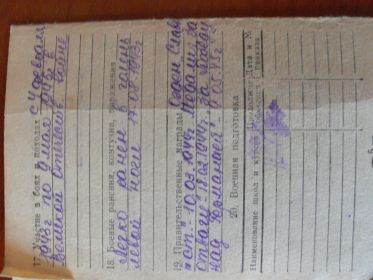 17. Участие в боях и походах с декабря
1942г по 9 мая 1945г в
Великой Отечеств. войне
18. Боевые ранения, контузии, поражения
легко ранен в голень
левой ноги 17.08.1943г
19. Правительственные награды Орден Слав
III ст. - 10.03.1944г. Медали: за
Отвагу - 18.03.1944г, за Победу
над Германией - 9.05.45г
20. Военная подготовка
Наименование школ и курсов
Дата и №
приказа